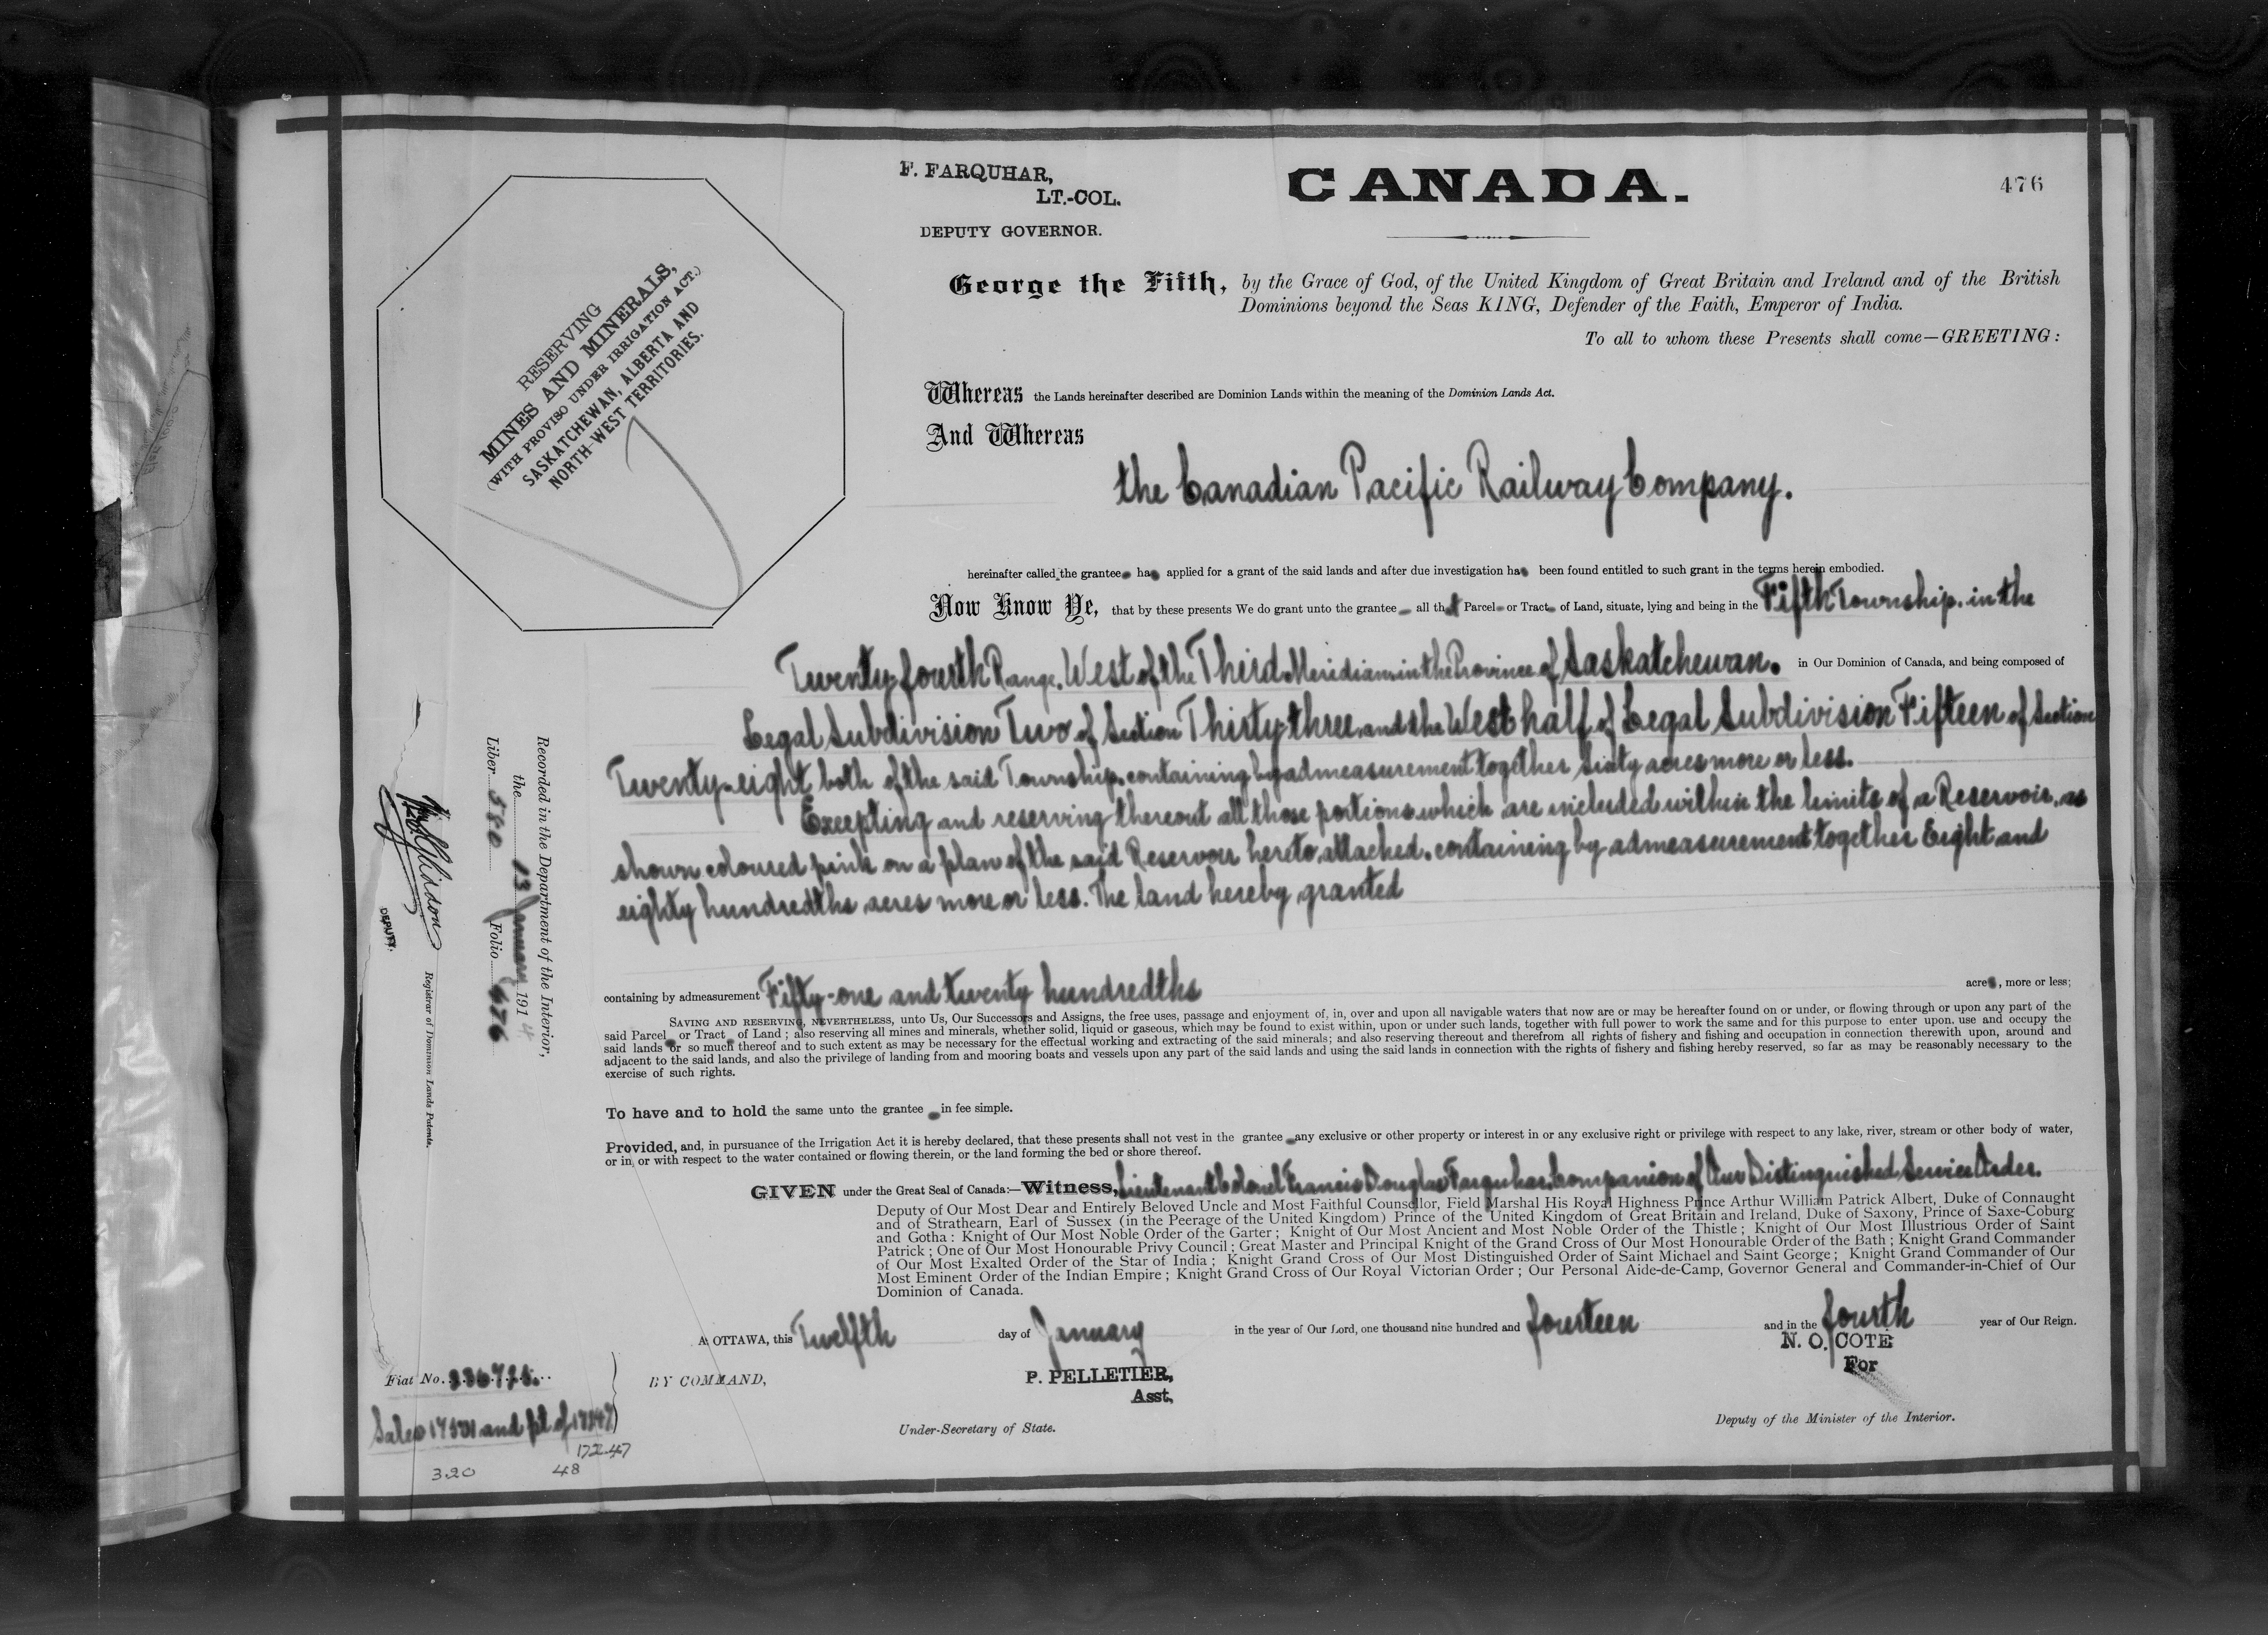 F. FARQUHAR,
LT.-COL.
DEPUTY GOVERNOR.
CANADA.
476
RESERVING
MINES AND MINERALS,
(WITH PROVISO UNDER IRRIGATION ACT.)
SASKATCHEWAN, ALBERTA AND
NORTH-WEST TERRITORIES.
George the Fifth, by the Grace of God, of the United Kingdom of Great Britain and Ireland and of the British
Dominions beyond the Seas KING, Defender of the Faith, Emperor of India.
To all to whom these Presents shall come—GREETING:
Whereas the Lands hereinafter described are Dominion Lands within the meaning of the Dominion Lands Act.
And Whereas
the Canadian Pacific Railway Company.
hereinafter called the grantee has applied for a grant of the said lands and after due investigation has been found entitled to such grant in the terms herein embodied.
Now Know Ye, that by these presents We do grant unto the grantee all that Parcel or Tract of Land, situate, lying and being in the Fifth Township, in the
Twenty-fourth Range, West of the Third Meridian, in the Province of Saskatchewan, in Our Dominion of Canada, and being composed of
Legal Subdivision Two of Section Thirty-three, and the West half of Legal Subdivision Fifteen of Section
Twenty-eight both of the said Township, containing by admeasurement together sixty acres more or less.
Excepting and reserving thereout all those portions which are included within the limits of a Reservoir, as
shown coloured pink on a plan of the said Reservoir hereto attached, containing by admeasurement together Eight and
eighty hundredths acres more or less. The land hereby granted
containing by admeasurement Fifty-one and twenty hundredths acres, more or less;
SAVING AND RESERVING, NEVERTHELESS, unto Us, Our Successors and Assigns, the free uses, passage and enjoyment of, in, over and upon all navigable waters that now are or may be hereafter found on or under, or flowing through or upon any part of the
said Parcel or Tract of Land; also reserving all mines and minerals, whether solid, liquid or gaseous, which may be found to exist within, upon or under such lands, together with full power to work the same and for this purpose to enter upon, use and occupy the
said lands or so much thereof and to such extent as may be necessary for the effectual working and extracting of the said minerals; and also reserving thereout and therefrom all rights of fishery and fishing and occupation in connection therewith upon, around and
adjacent to the said lands, and also the privilege of landing from and mooring boats and vessels upon any part of the said lands and using the said lands in connection with the rights of fishery and fishing hereby reserved, so far as may be reasonably necessary to the
exercise of such rights.
To have and to hold the same unto the grantee in fee simple.
Provided, and, in pursuance of the Irrigation Act it is hereby declared, that these presents shall not vest in the grantee any exclusive or other property or interest in or any exclusive right or privilege with respect to any lake, river, stream or other body of water,
or in, or with respect to the water contained or flowing therein, or the land forming the bed or shore thereof.
GIVEN under the Great Seal of Canada:—Witness, Lieutenant Colonel Francis Douglas Farquhar, Companion of Our Distinguished Service Order,
Deputy of Our Most Dear and Entirely Beloved Uncle and Most Faithful Counsellor, Field Marshal His Royal Highness Prince Arthur William Patrick Albert, Duke of Connaught
and of Strathearn, Earl of Sussex (in the Peerage of the United Kingdom) Prince of the United Kingdom of Great Britain and Ireland, Duke of Saxony, Prince of Saxe-Coburg
and Gotha: Knight of Our Most Noble Order of the Garter; Knight of Our Most Ancient and Most Noble Order of the Thistle; Knight of Our Most Illustrious Order of Saint
Patrick; One of Our Most Honourable Privy Council; Great Master and Principal Knight of the Grand Cross of Our Most Honourable Order of the Bath; Knight Grand Commander
of Our Most Exalted Order of the Star of India; Knight Grand Cross of Our Most Distinguished Order of Saint Michael and Saint George; Knight Grand Commander of Our
Most Eminent Order of the Indian Empire; Knight Grand Cross of Our Royal Victorian Order; Our Personal Aide-de-Camp, Governor General and Commander-in-Chief of Our
Dominion of Canada.
At OTTAWA, this Twelfth day of January in the year of Our Lord, one thousand nine hundred and fourteen and in the fourth year of Our Reign.
N. O. COTE
For
BY COMMAND,
P. PELLETIER,
Asst,
Under-Secretary of State.
Deputy of the Minister of the Interior.
Recorded in the Department of the Interior,
the 13 January 1914
Liber Folio 476
DEPUTY.
Registrar of Dominion Lands Patents.
Fiat No.
Sales 17531 and pt of
17247
320 48